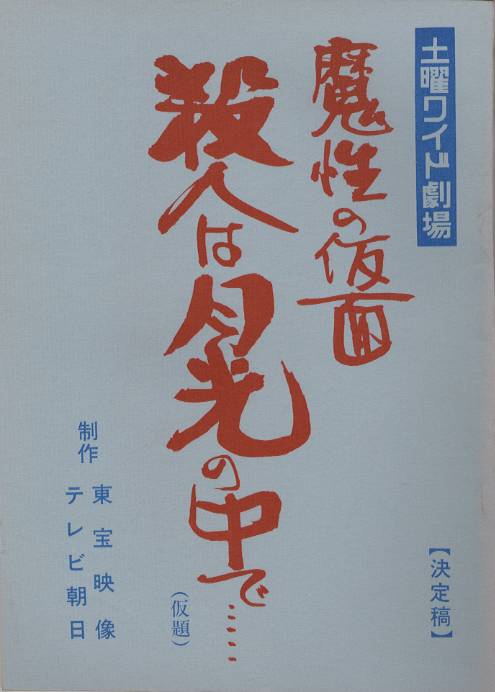 土曜ワイド劇場
魔性の仮面
殺人は月光の中で……
(仮題)
【決定稿】
制作
東宝映像
テレビ朝日